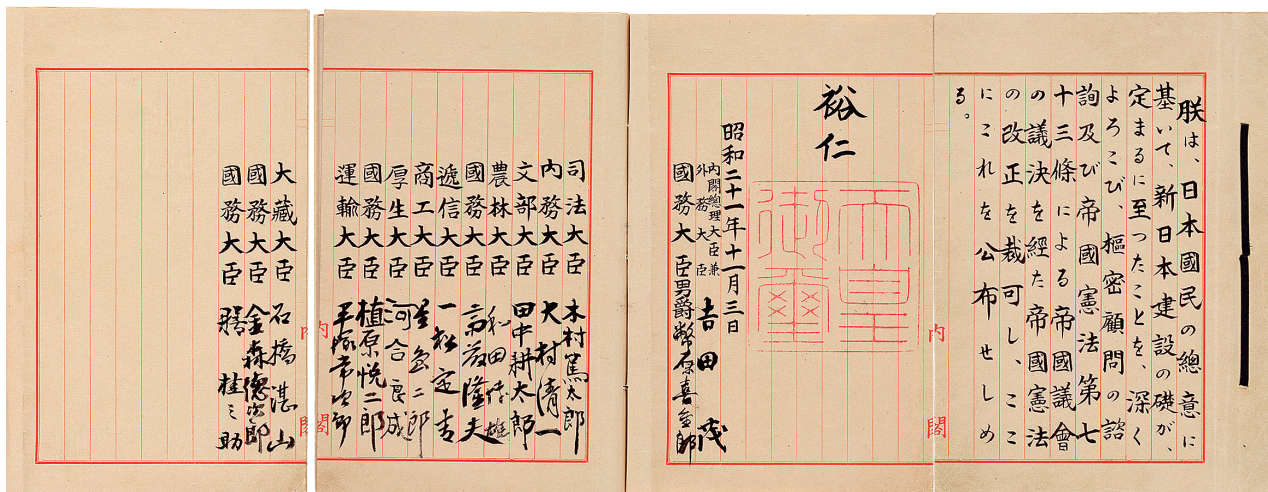 朕は、日本國民の總意に
基いて、新日本建設の礎が、
定まるに至つたことを、深く
よろこび、樞密顧問の諮
詢及び帝國憲法第七
十三條による帝國議會
の議決を經た帝國憲法
の改正を裁可し、ここ
にこれを公布せしめ
る。
裕仁
天皇御璽
昭和二十一年十一月三日
內閣總理大臣兼
外務大臣 吉田茂
國務大臣男爵幣原喜重郎
司法大臣 木村篤太郎
內務大臣 大村清一
文部大臣 田中耕太郎
農林大臣 和田博雄
國務大臣 斎藤隆夫
遞信大臣 一松定吉
商工大臣 星島二郎
厚生大臣 河合良成
國務大臣 植原悅二郎
運輸大臣 平塚常次郎
大藏大臣 石橋湛山
國務大臣 金森德次郎
國務大臣 膳桂之助
內閣
內閣